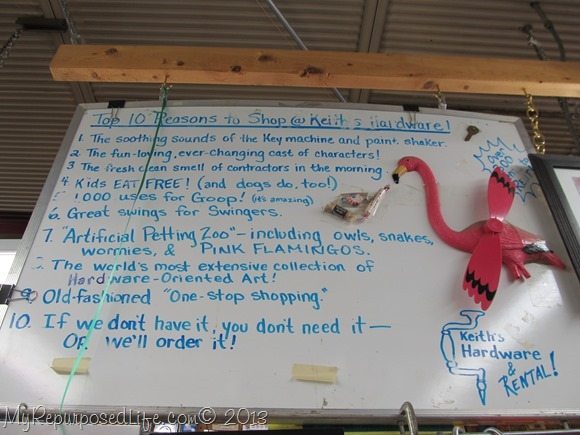 Top 10 Reasons to Shop @ Keith's Hardware!
1. The soothing sounds of the Key machine and paint shaker.
2. The fun-loving, ever-changing cast of characters!
3. The fresh clean smell of contractors in the morning
4. Kids EAT FREE! (and dogs do, too!)
5. 1,000 uses for Goop! (It's amazing)
6. Great swings for Swingers.
7. "Artificial Petting Zoo" – including owls, snakes,
wormies, & PINK FLAMINGOS.
8. The world's most extensive collection of
Hardware-Oriented Art!
9. Old-fashioned "One-stop shopping."
10. If we don't have it, you don't need it —
Or we'll order it!
Keith's
Hardware
&
RENTAL!
MyRepurposedLife.com © 2013